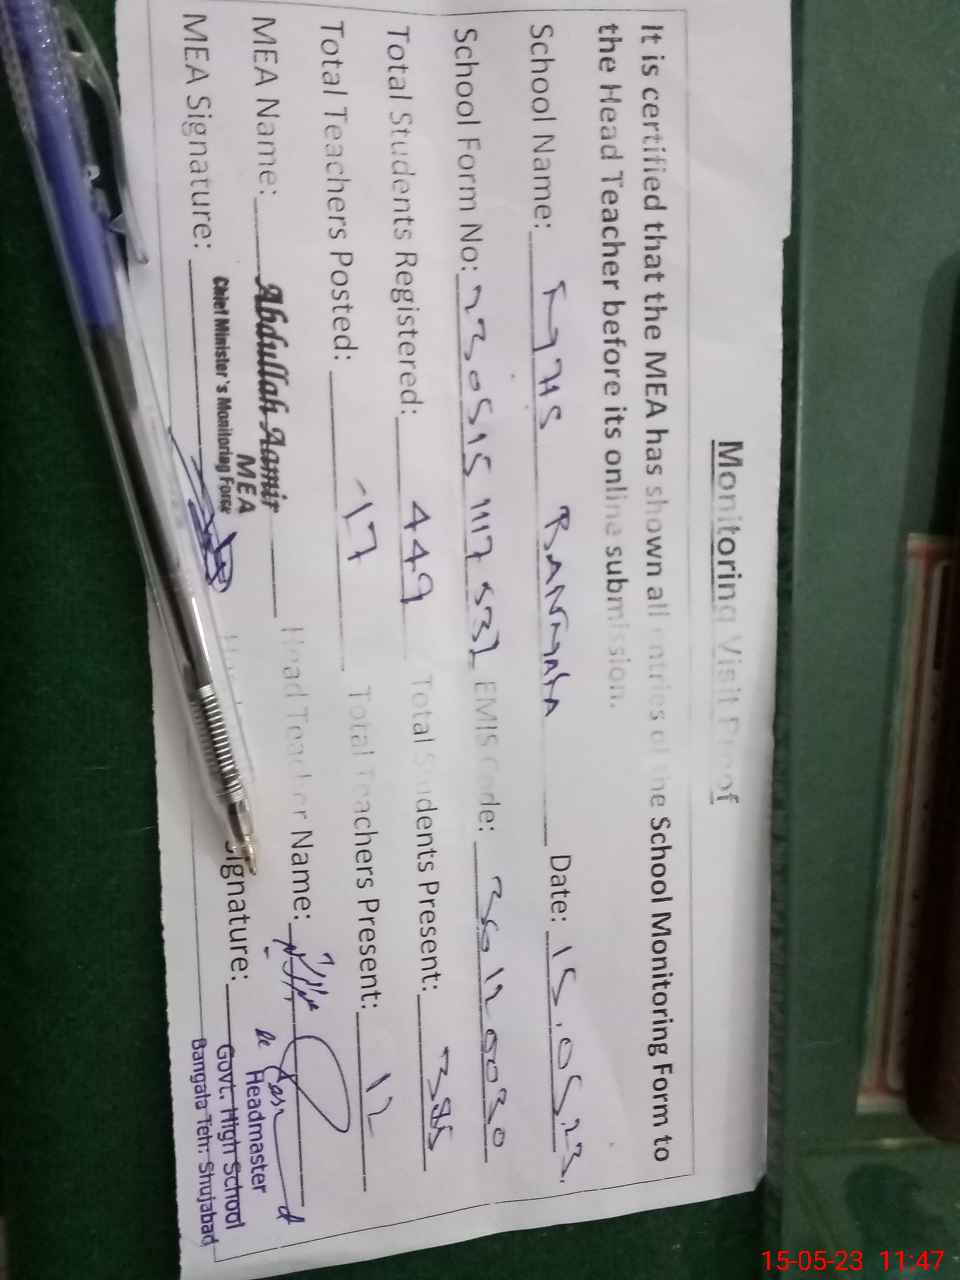 Monitoring Visit Proof
It is certified that the MEA has shown all entries of the School Monitoring Form to
the Head Teacher before its online submission.
School Name: Date: 15.05.23.
School Form No: EMIS Code: 36120030
Total Students Registered: 449 Total Students Present: 385
Total Teachers Posted: 17 Total Teachers Present: 12
MEA Name: Abdullah Aamir Head Teacher Name:
MEA
MEA Signature: Chief Minister's Monitoring Force Signature:
Headmaster
Govt. High School
Bangala Teh: Shujabad
15-05-23 11:47